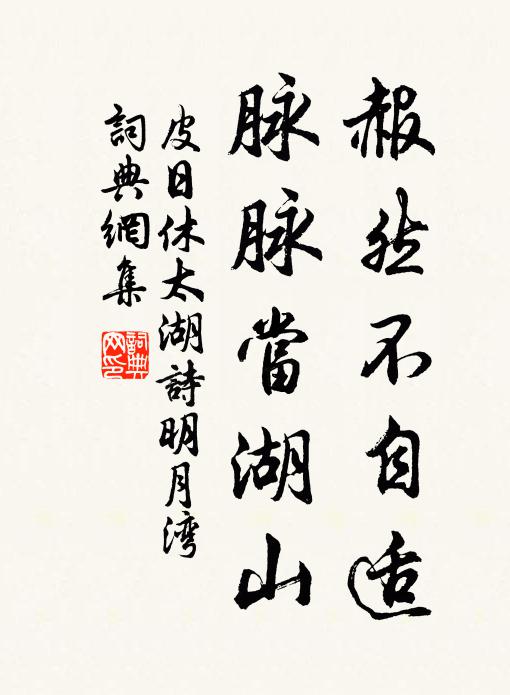 赧然不自适
脉脉當湖山
皮日休太湖詩明月湾
詞典網集
詞典網印